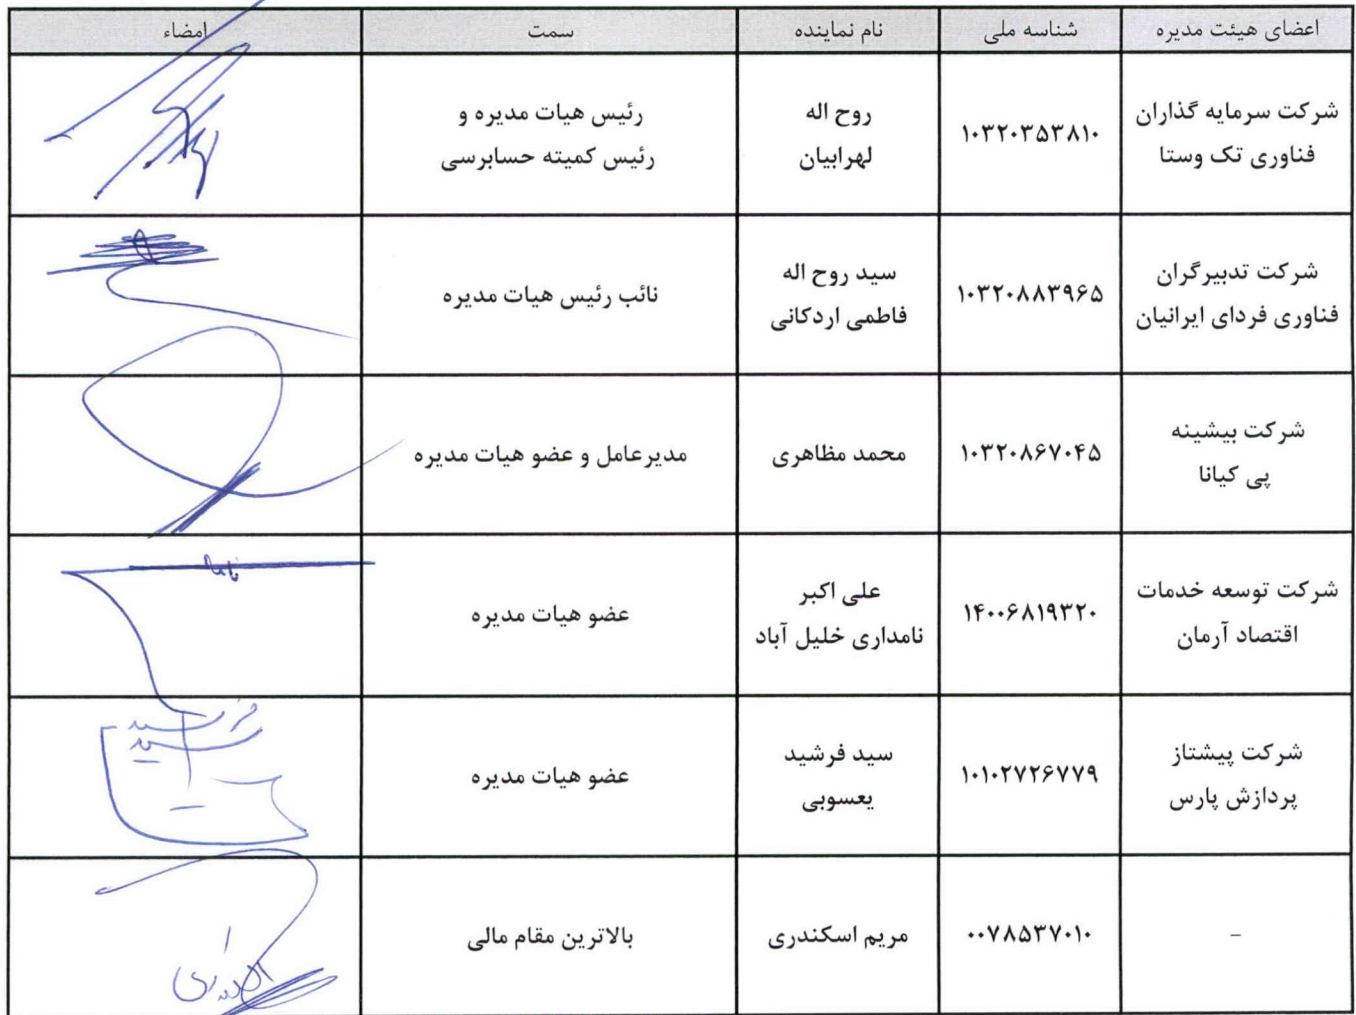 اعضای هیئت مدیره شناسه ملی نام نماینده سمت امضاء
شرکت سرمایه گذاران
فناوری تک وستا
۱۰۳۲۰۳۵۳۸۱۰
روح اله
لهرابیان
رئیس هیات مدیره و
رئیس کمیته حسابرسی
شرکت تدبیرگران
فناوری فردای ایرانیان
۱۰۳۲۰۸۸۳۹۶۵
سید روح اله
فاطمی اردکانی
نائب رئیس هیات مدیره
شرکت بیشینه
پی کیانا
۱۰۳۲۰۸۶۷۰۴۵
محمد مظاهری
مدیرعامل و عضو هیات مدیره
شرکت توسعه خدمات
اقتصاد آرمان
۱۴۰۰۶۸۱۹۳۲۰
علی اکبر
نامداری خلیل آباد
عضو هیات مدیره
شرکت پیشتاز
پردازش پارس
۱۰۱۰۲۷۲۶۷۷۹
سید فرشید
یعسوبی
عضو هیات مدیره
–
۰۰۷۸۵۳۷۰۱۰
مریم اسکندری
بالاترین مقام مالی